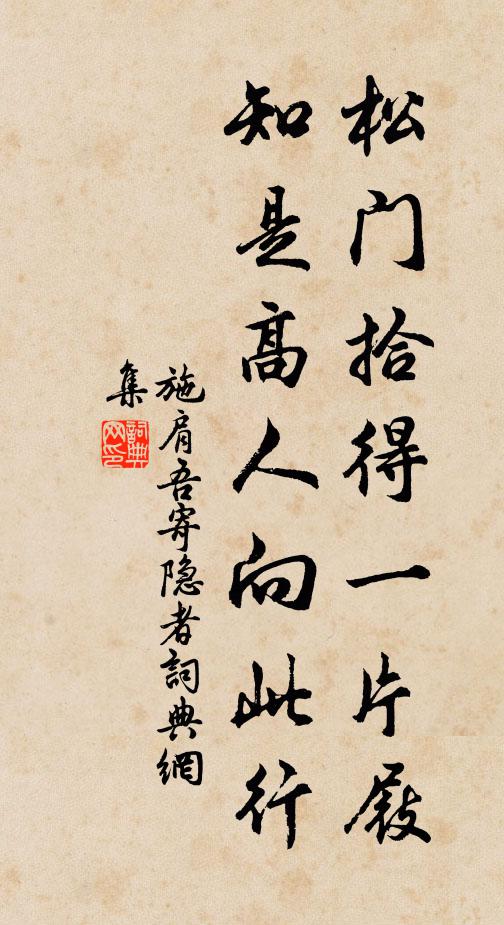 松门拾得一片屐
知是高人向此行
施肩吾寄隐者詞典網
集
詞典
网印